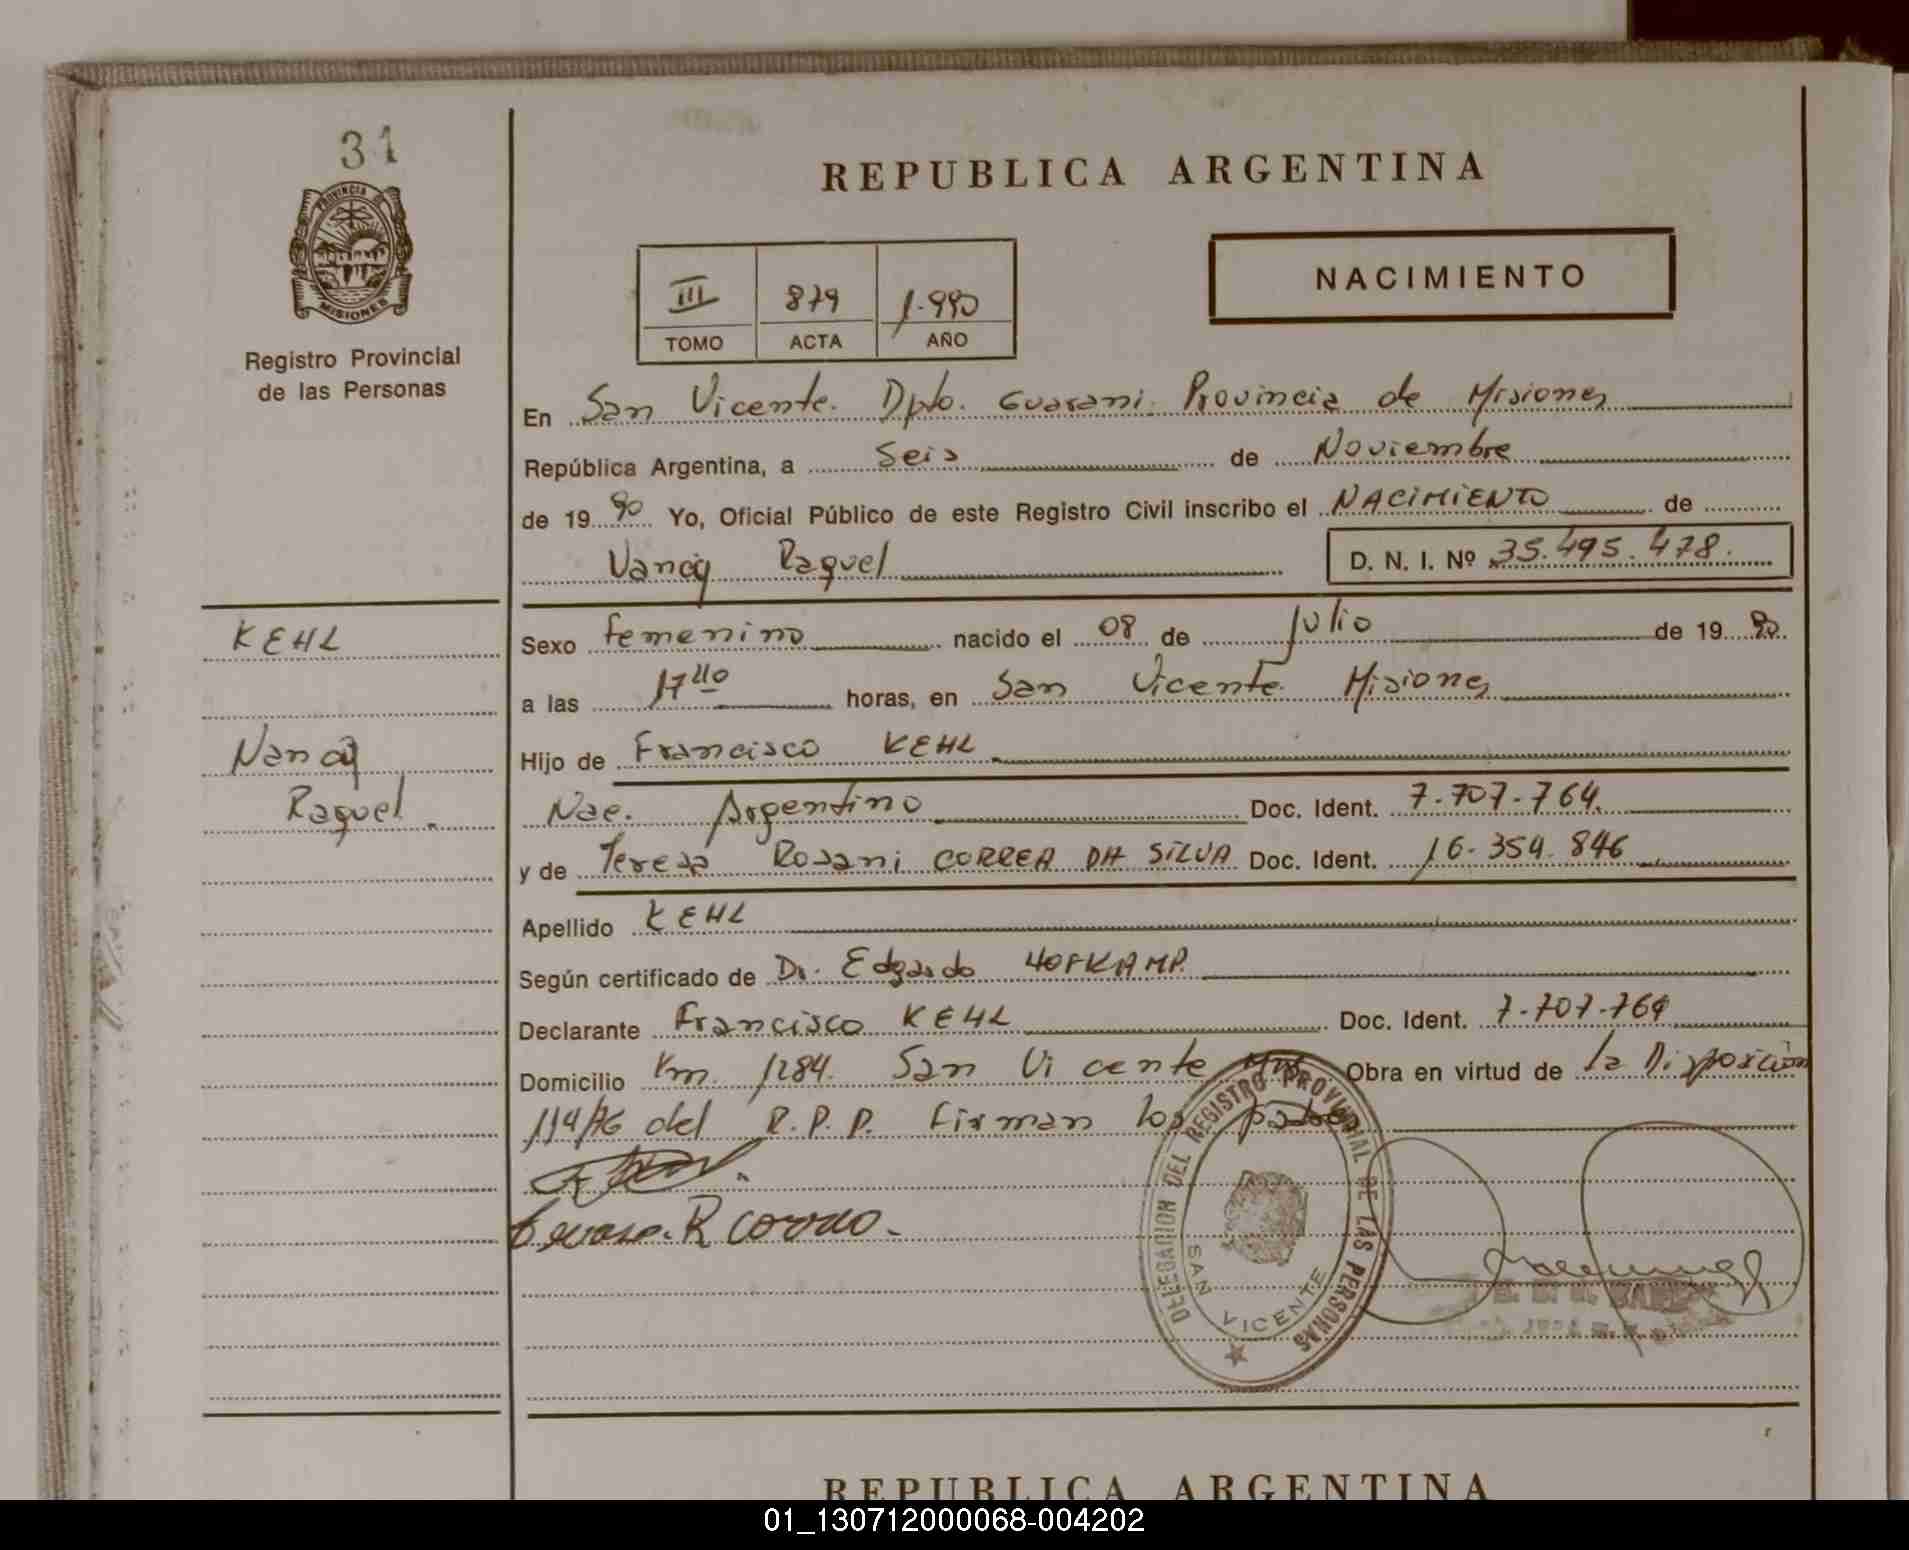 31
PROVINCIA
MISIONES
Registro Provincial
de las Personas
REPUBLICA ARGENTINA
NACIMIENTO
III 879 1.990
TOMO ACTA AÑO
En San Vicente. Dpto. Guarani. Provincia de Misiones
República Argentina, a Seis de Noviembre
de 1990 Yo, Oficial Público de este Registro Civil inscribo el NACIMIENTO de
Nancy Raquel D. N. I. Nº 35.495.478.
KEHL
Nancy
Raquel.
Sexo femenino nacido el 08 de Julio de 1990.
a las 17 horas, en San Vicente. Misiones
Hijo de Francisco KEHL
Nac. Argentino Doc. Ident. 7.707.764.
y de Teresa Rosani CORREA DA SILVA Doc. Ident. 16.354.846
Apellido KEHL
Según certificado de Dr. Edgardo HOFKAMP.
Declarante Francisco KEHL Doc. Ident. 7.707.764
Domicilio Km. 1284. San Vicente Mnes Obra en virtud de la Disposición
114/76 del R.P.P. Firman los padres
DELEGACION DEL REGISTRO PROVINCIAL DE LAS PERSONAS
SAN VICENTE
REPUBLICA ARGENTINA
01_130712000068-004202